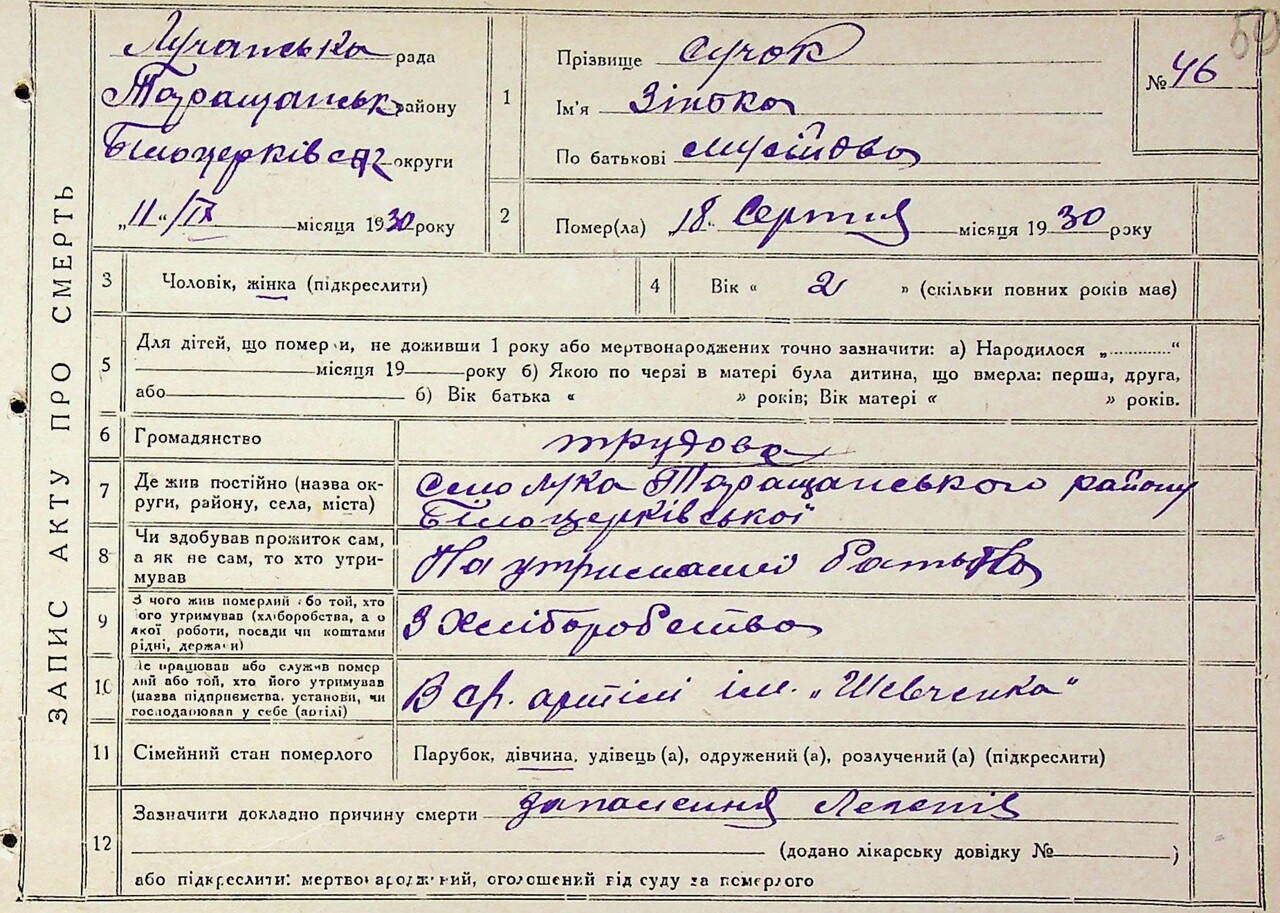 59
ЗАПИС АКТУ ПРО СМЕРТЬ
Лучанська рада
Таращанськ району
Білоцерківськ округи
„11“/IX місяця 1930 року
1
Прізвище Сучок
Ім'я Зінька
По батькові Мусійова
№ 46
2
Помер(ла) „18“ Серпня місяця 1930 року
3
Чоловік, жінка (підкреслити)
4
Вік « 2 » (скільки повних років має)
5
Для дітей, що померли, не доживши 1 року або мертвонароджених точно зазначити: а) Народилося „............“
місяця 19 року б) Якою по черзі в матері була дитина, що вмерла: перша, друга,
або б) Вік батька « » років; Вік матері « » років.
6
Громадянство
трудове
7
Де жив постійно (назва ок-
руги, району, села, міста)
Село Лука Таращанського району
Білоцерківської
8
Чи здобував прожиток сам,
а як не сам, то хто утри-
мував
На утриманні батька
9
З чого жив померлий або той, хто
його утримував (хліборобства, а о
якої роботи, посади чи коштами
рідні, держави)
З хліборобства
10
Де працював або служив помер
лий або той, хто його утримував
(назва підприємства, установи, чи
господарював у себе (артілі)
В ср. артілі ім. „Шевченка“
11
Сімейний стан померлого
Парубок, дівчина, удівець (а), одружений (а), розлучений (а) (підкреслити)
12
Зазначити докладно причину смерти запалення Легенів
(додано лікарську довідку № )
або підкреслити: мертвонароджений, оголошений від суду за померлого